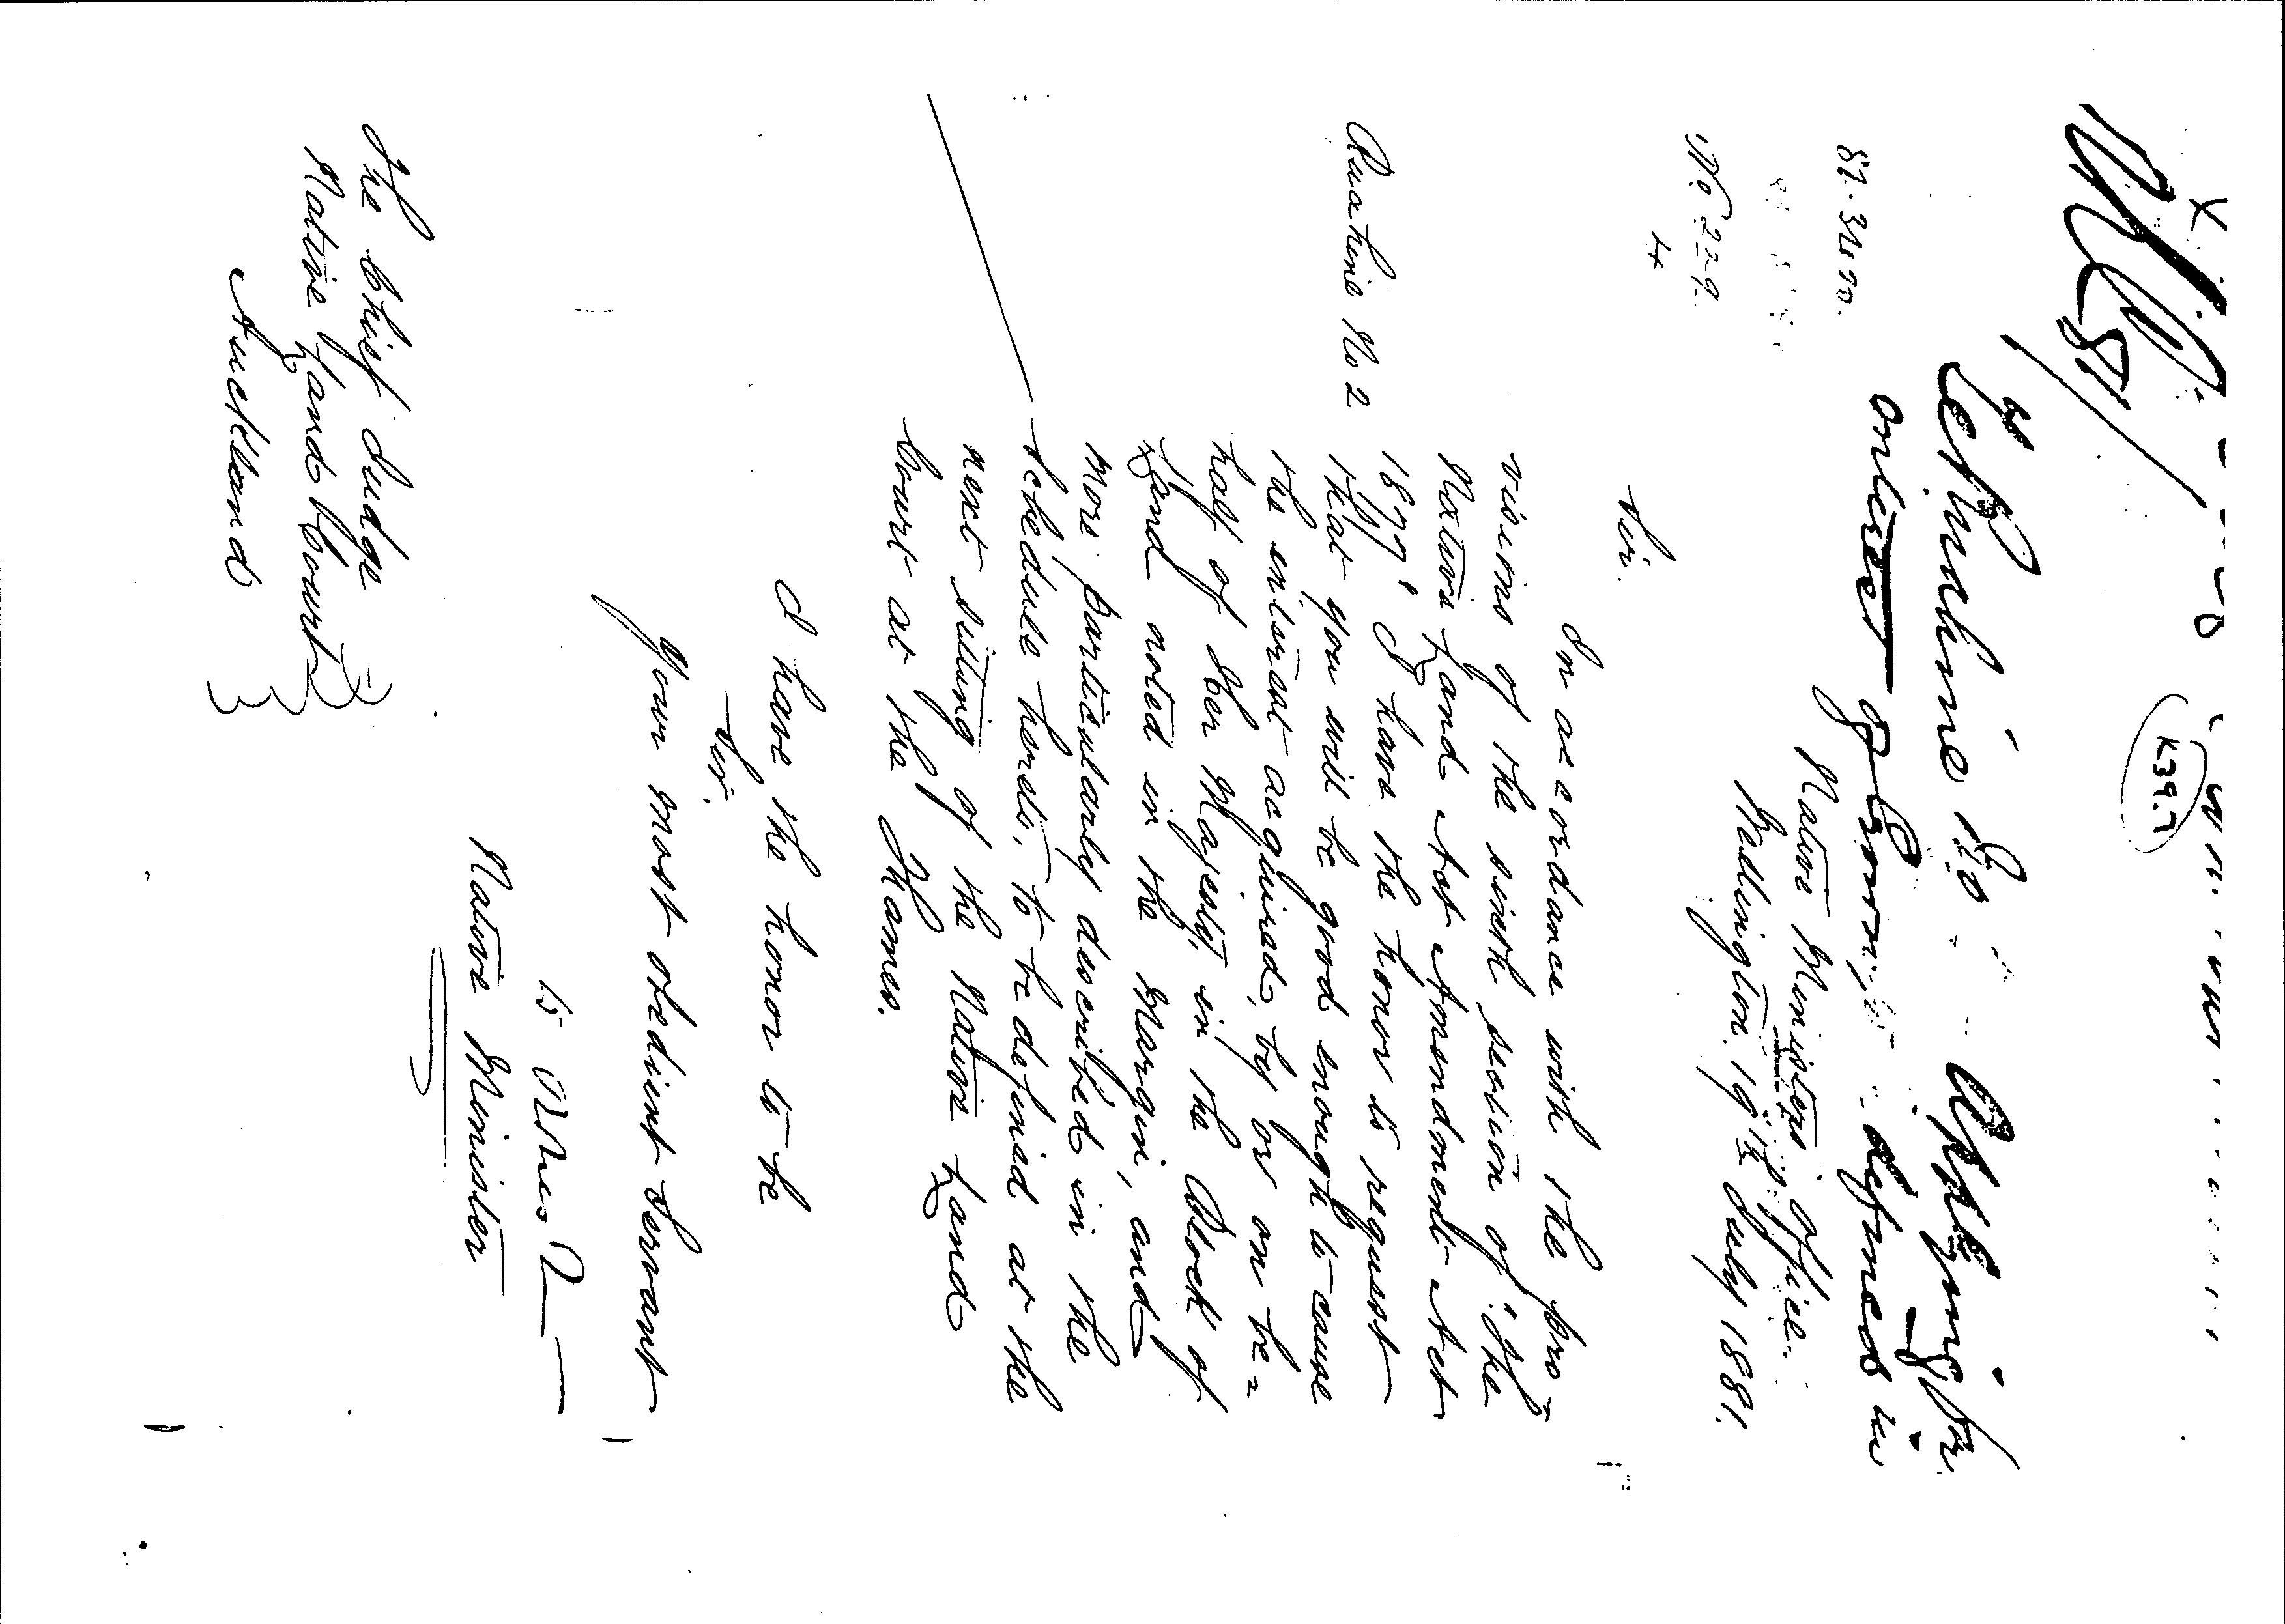 K397
Applying for
interest of Crown defined in
81.3470.
Native Ministers Office.
No 229.
Wellington 19th July 1881.
4
Sir.
In accordance with the pro-
visions of the sixth section of "The
Native Land Act Amendment Act
1877" I have the honor to request
Ruahine No 2
that you will be good enough to cause
the interest acquired, by or on be=
half of Her Majesty, in the Block of
Land noted in the Margin, and
more particularly described in the
schedule hereto, to be defined at the
next sitting of the Native Land
Court at the Thames.
I have the honor to be
Sir.
Your most obedient Servant
Native Minister
The Chief Judge
Native Land Court
Auckland